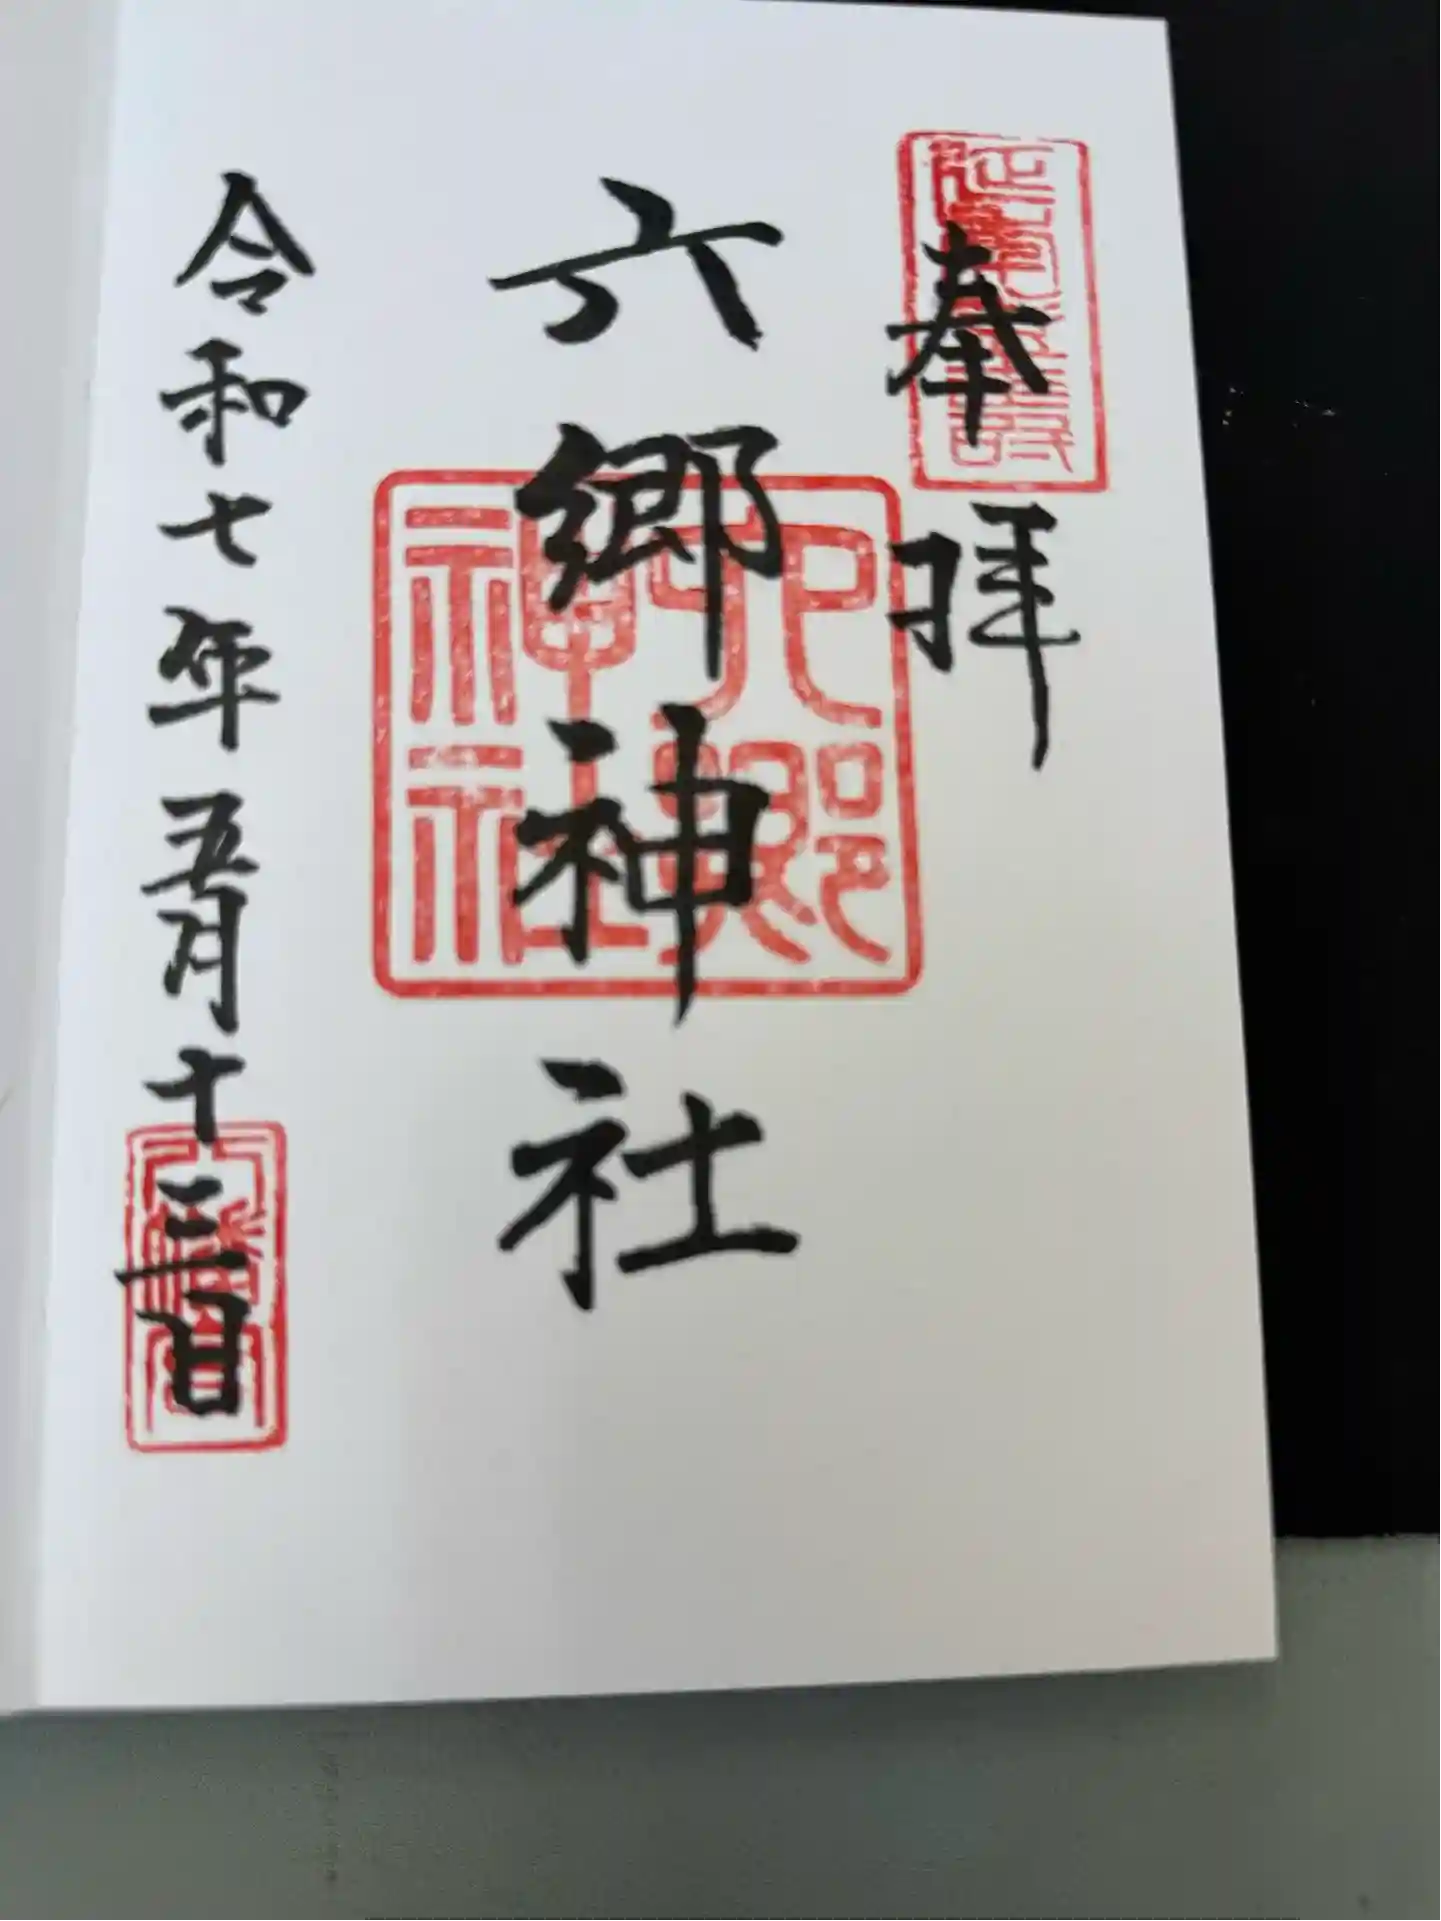 奉拝
六郷神社
六郷
神社
令和七年五月十三日